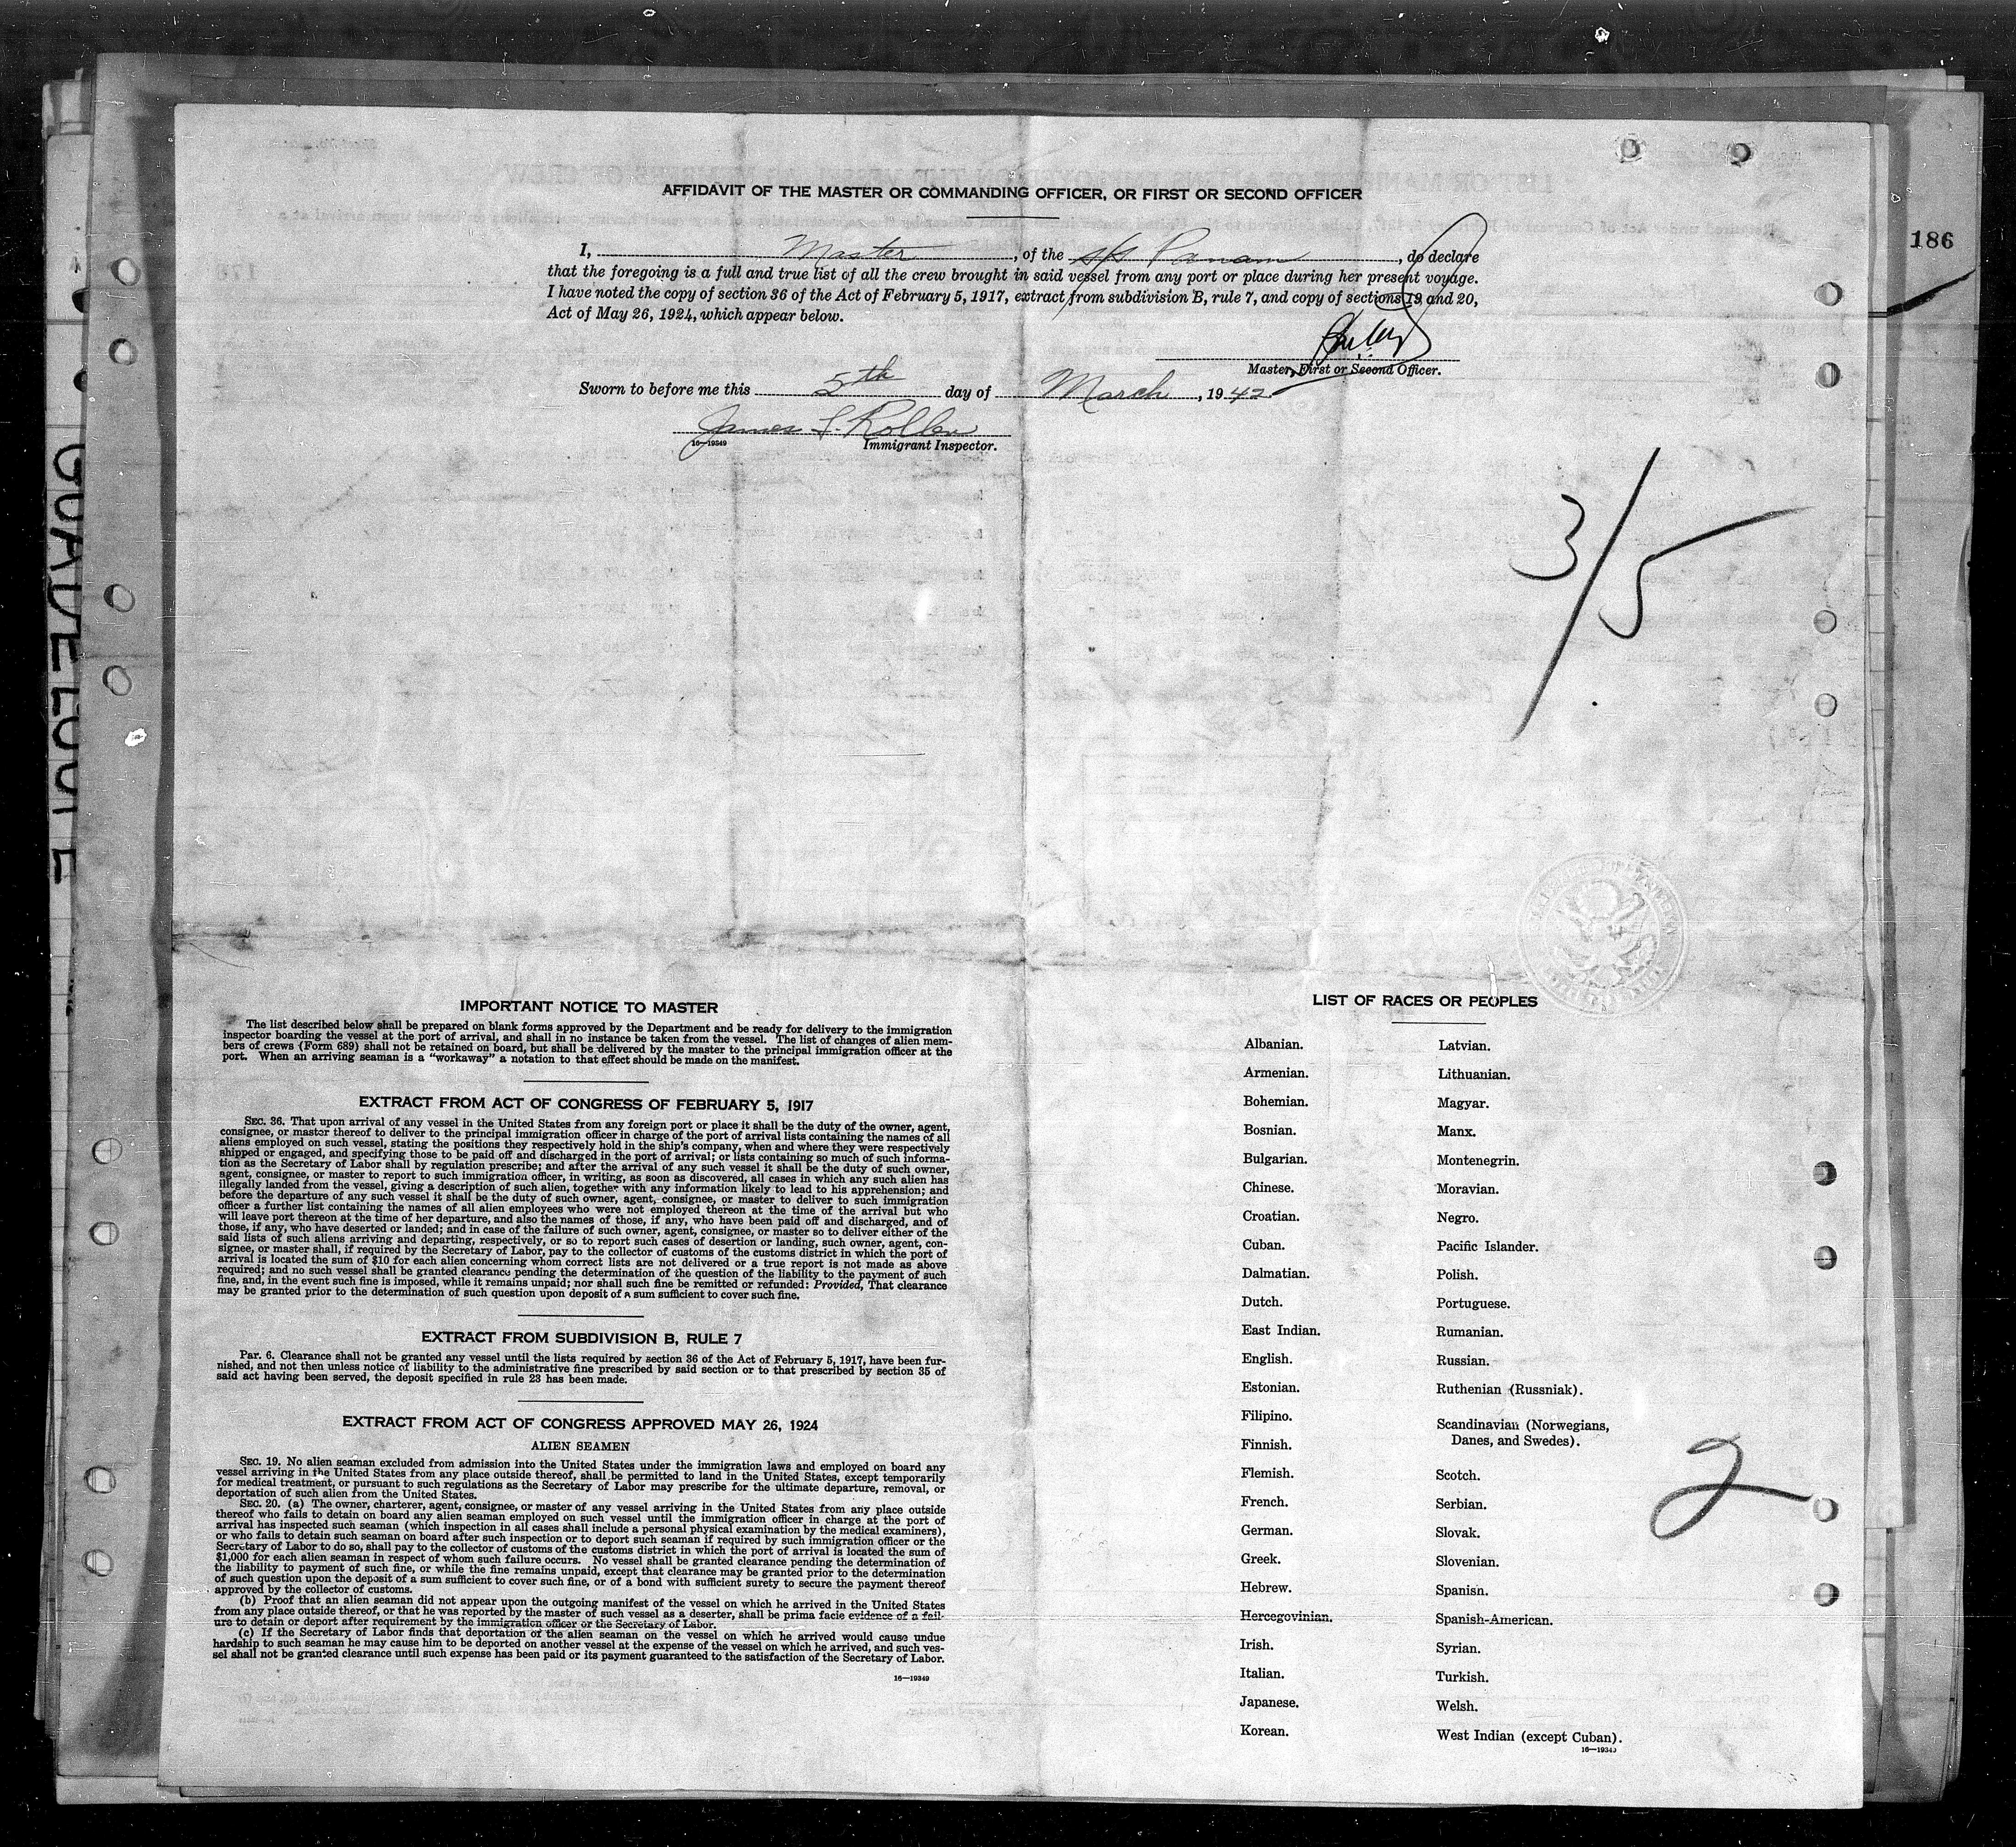 AFFIDAVIT OF THE MASTER OR COMMANDING OFFICER, OR FIRST OR SECOND OFFICER
I, Master, of the s/s Panam, do declare
that the foregoing is a full and true list of all the crew brought in said vessel from any port or place during her present voyage.
I have noted the copy of section 36 of the Act of February 5, 1917, extract from subdivision B, rule 7, and copy of sections 19 and 20,
Act of May 26, 1924, which appear below.
Master, First or Second Officer.
Sworn to before me this 5th day of March, 1942
James S. Rollen
16—19349 Immigrant Inspector.
186
3/5
IMPORTANT NOTICE TO MASTER
The list described below shall be prepared on blank forms approved by the Department and be ready for delivery to the immigration
inspector boarding the vessel at the port of arrival, and shall in no instance be taken from the vessel. The list of changes of alien mem-
bers of crews (Form 689) shall not be retained on board, but shall be delivered by the master to the principal immigration officer at the
port. When an arriving seaman is a "workaway" a notation to that effect should be made on the manifest.
EXTRACT FROM ACT OF CONGRESS OF FEBRUARY 5, 1917
SEC. 36. That upon arrival of any vessel in the United States from any foreign port or place it shall be the duty of the owner, agent,
consignee, or master thereof to deliver to the principal immigration officer in charge of the port of arrival lists containing the names of all
aliens employed on such vessel, stating the positions they respectively hold in the ship's company, when and where they were respectively
shipped or engaged, and specifying those to be paid off and discharged in the port of arrival; or lists containing so much of such informa-
tion as the Secretary of Labor shall by regulation prescribe; and after the arrival of any such vessel it shall be the duty of such owner,
agent, consignee, or master to report to such immigration officer, in writing, as soon as discovered, all cases in which any such alien has
illegally landed from the vessel, giving a description of such alien, together with any information likely to lead to his apprehension; and
before the departure of any such vessel it shall be the duty of such owner, agent, consignee, or master to deliver to such immigration
officer a further list containing the names of all alien employees who were not employed thereon at the time of the arrival but who
will leave port thereon at the time of her departure, and also the names of those, if any, who have been paid off and discharged, and of
those, if any, who have deserted or landed; and in case of the failure of such owner, agent, consignee, or master so to deliver either of the
said lists of such aliens arriving and departing, respectively, or so to report such cases of desertion or landing, such owner, agent, con-
signee, or master shall, if required by the Secretary of Labor, pay to the collector of customs of the customs district in which the port of
arrival is located the sum of $10 for each alien concerning whom correct lists are not delivered or a true report is not made as above
required; and no such vessel shall be granted clearance pending the determination of the question of the liability to the payment of such
fine, and, in the event such fine is imposed, while it remains unpaid; nor shall such fine be remitted or refunded: Provided, That clearance
may be granted prior to the determination of such question upon deposit of a sum sufficient to cover such fine.
EXTRACT FROM SUBDIVISION B, RULE 7
Par. 6. Clearance shall not be granted any vessel until the lists required by section 36 of the Act of February 5, 1917, have been fur-
nished, and not then unless notice of liability to the administrative fine prescribed by said section or to that prescribed by section 35 of
said act having been served, the deposit specified in rule 23 has been made.
EXTRACT FROM ACT OF CONGRESS APPROVED MAY 26, 1924
ALIEN SEAMEN
SEC. 19. No alien seaman excluded from admission into the United States under the immigration laws and employed on board any
vessel arriving in the United States from any place outside thereof, shall be permitted to land in the United States, except temporarily
for medical treatment, or pursuant to such regulations as the Secretary of Labor may prescribe for the ultimate departure, removal, or
deportation of such alien from the United States.
SEC. 20. (a) The owner, charterer, agent, consignee, or master of any vessel arriving in the United States from any place outside
thereof who fails to detain on board any alien seaman employed on such vessel until the immigration officer in charge at the port of
arrival has inspected such seaman (which inspection in all cases shall include a personal physical examination by the medical examiners),
or who fails to detain such seaman on board after such inspection or to deport such seaman if required by such immigration officer or the
Secretary of Labor to do so, shall pay to the collector of customs of the customs district in which the port of arrival is located the sum of
$1,000 for each alien seaman in respect of whom such failure occurs. No vessel shall be granted clearance pending the determination of
the liability to payment of such fine, or while the fine remains unpaid, except that clearance may be granted prior to the determination
of such question upon the deposit of a sum sufficient to cover such fine, or of a bond with sufficient surety to secure the payment thereof
approved by the collector of customs.
(b) Proof that an alien seaman did not appear upon the outgoing manifest of the vessel on which he arrived in the United States
from any place outside thereof, or that he was reported by the master of such vessel as a deserter, shall be prima facie evidence of a fail-
ure to detain or deport after requirement by the immigration officer or the Secretary of Labor.
(c) If the Secretary of Labor finds that deportation of the alien seaman on the vessel on which he arrived would cause undue
hardship to such seaman he may cause him to be deported on another vessel at the expense of the vessel on which he arrived, and such ves-
sel shall not be granted clearance until such expense has been paid or its payment guaranteed to the satisfaction of the Secretary of Labor.
16—19349
LIST OF RACES OR PEOPLES
Albanian.
Armenian.
Bohemian.
Bosnian.
Bulgarian.
Chinese.
Croatian.
Cuban.
Dalmatian.
Dutch.
East Indian.
English.
Estonian.
Filipino.
Finnish.
Flemish.
French.
German.
Greek.
Hebrew.
Hercegovinian.
Irish.
Italian.
Japanese.
Korean.
Latvian.
Lithuanian.
Magyar.
Manx.
Montenegrin.
Moravian.
Negro.
Pacific Islander.
Polish.
Portuguese.
Rumanian.
Russian.
Ruthenian (Russniak).
Scandinavian (Norwegians,
Danes, and Swedes).
Scotch.
Serbian.
Slovak.
Slovenian.
Spanish.
Spanish-American.
Syrian.
Turkish.
Welsh.
West Indian (except Cuban).
16—19349
2